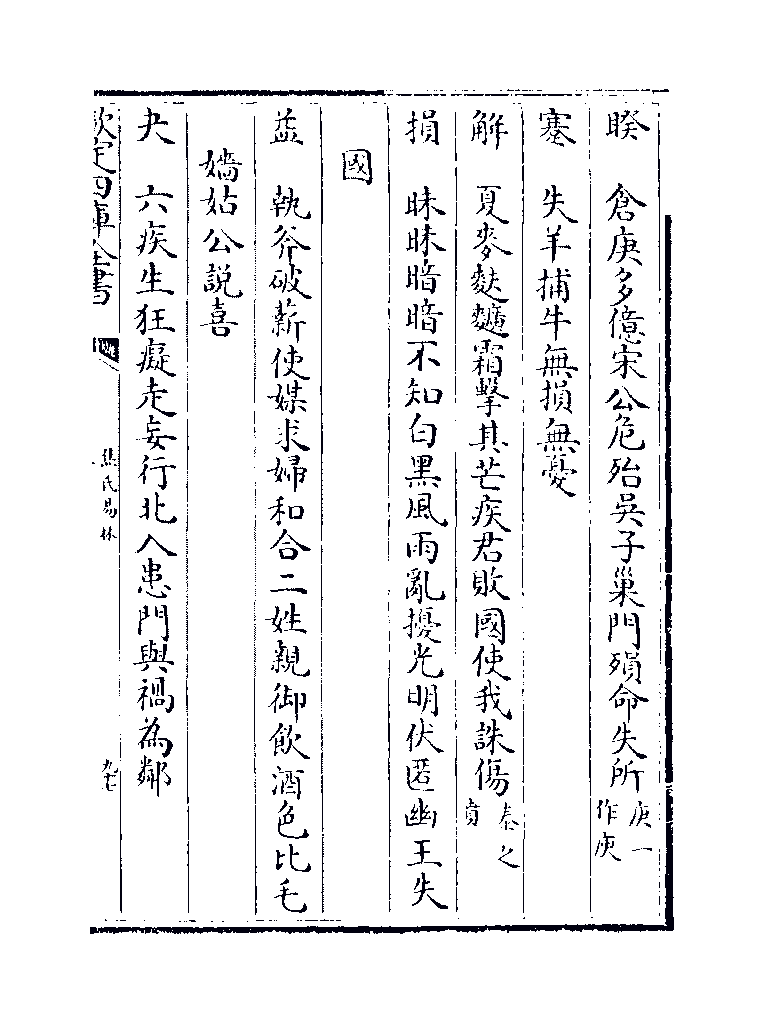 睽　倉庚多億宋公危殆吳子巢門殞命失所庚一作庾
塞　失羊捕牛無損無憂
解　夏麥麩䵃霜擊其芒疾君敗國使我誅傷泰之賁
損　昧昧暗暗不知白黑風雨亂擾光明伏匿幽王失
國
益　執斧破薪使媒求婦和合二姓親御飲酒色比毛
嬙姑公説喜
夬　六疾生狂癡走妄行北入患門與禍為鄰
欽定四庫全書
焦氏易林
九十七